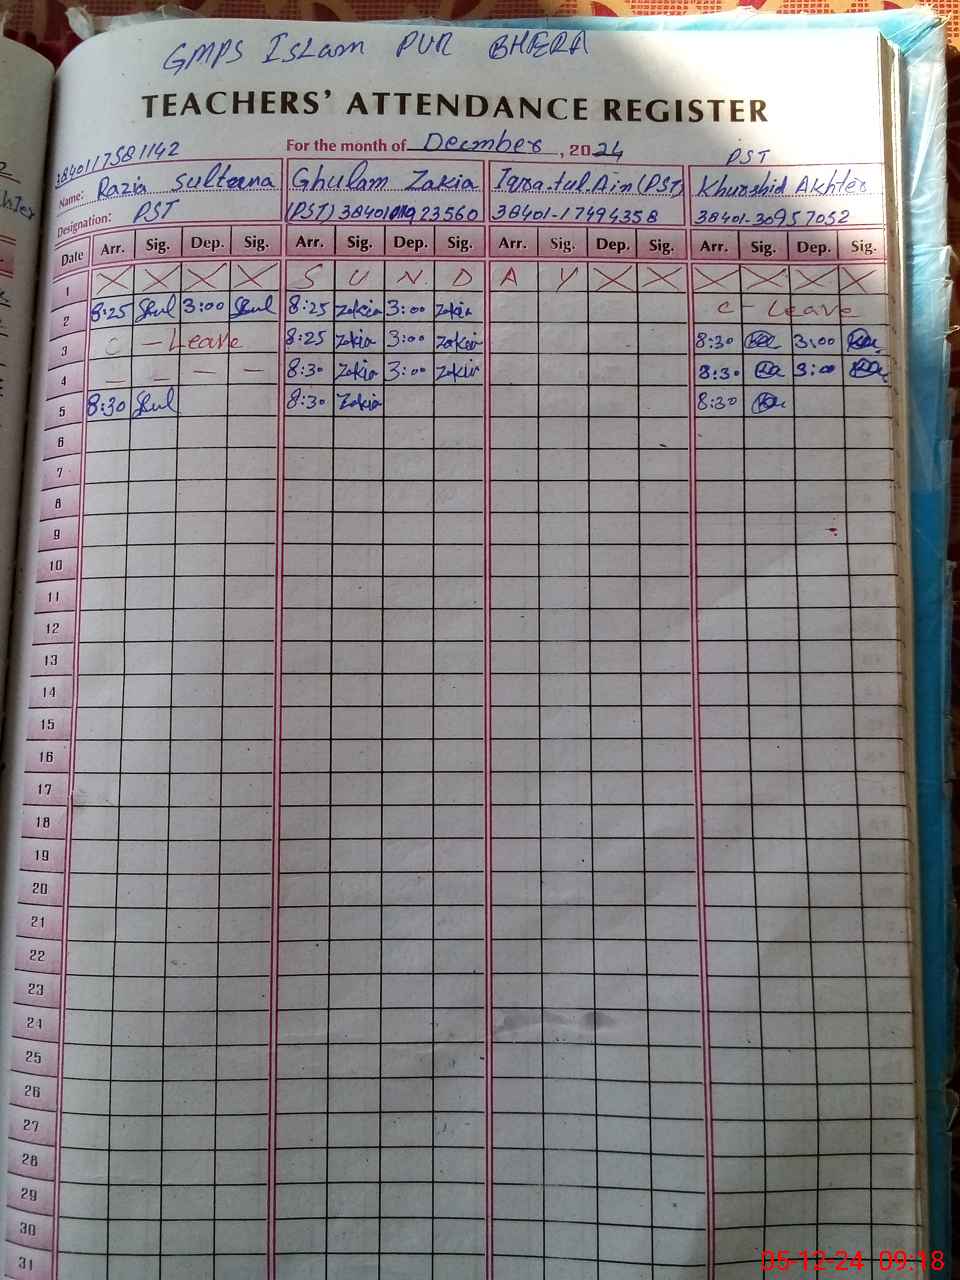 GMPS Islam PUR BHERA
TEACHERS' ATTENDANCE REGISTER
For the month of December, 2024
3840117581142
PST
Name: Razia Sulteana
Ghulam Zakia
Iqra-tul-Ain (PST)
Khurshid Akhter
Designation: PST
(PST)
38401-17494358
38401-30957052
Date Arr. Sig. Dep. Sig. Arr. Sig. Dep. Sig. Arr. Sig. Dep. Sig. Arr. Sig. Dep. Sig.
1 X X X X S U N. D A Y X X X X X X
2 8:25 3:00 8:25 Zakia 3:00 Zakia C - Leave
3 C - Leave 8:25 Zakia 3:00 Zakia 8:30 3:00
4 — — — — 8:30 Zakia 3:00 Zakia 8:30 3:00
5 8:30 8:30 Zakia 8:30
6
7
8
9
10
11
12
13
14
15
16
17
18
19
20
21
22
23
24
25
26
27
28
29
30
31
05-12-24 09:18